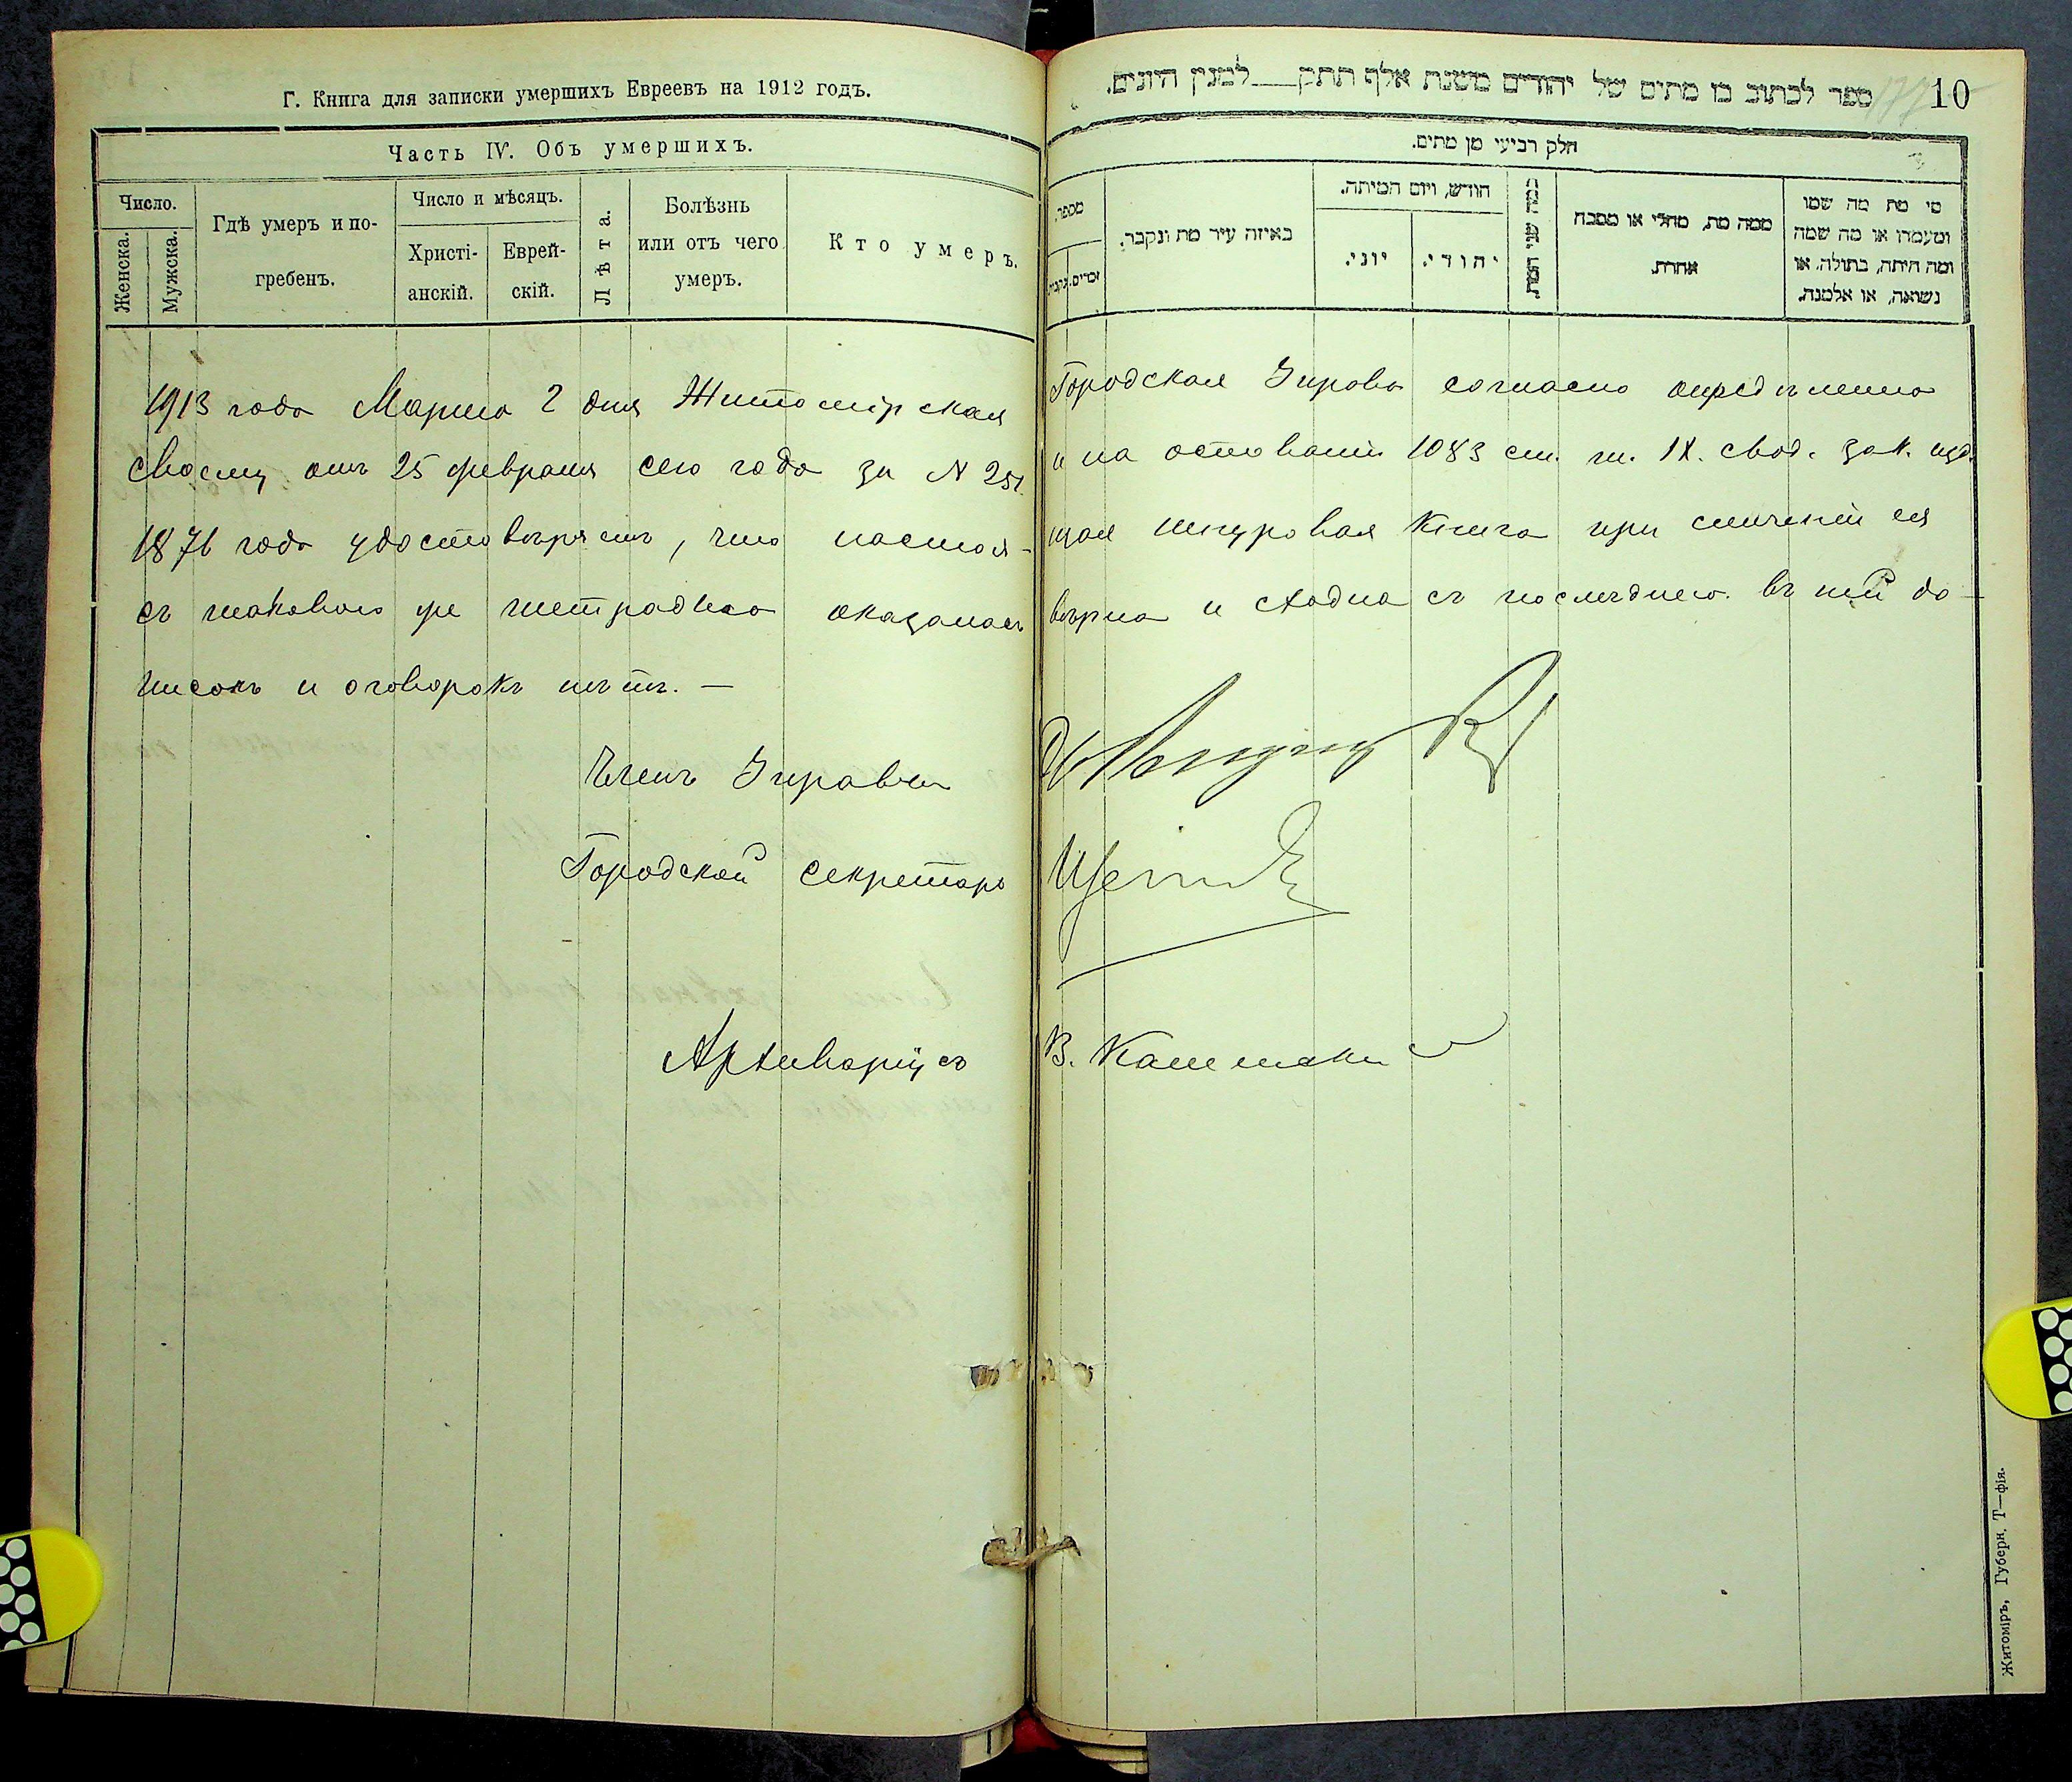 Г. Книга для записки умершихъ Евреевъ на 1912 годъ.
Часть IV. Объ умершихъ.
Число.
Женска.
Мужска.
Гдѣ умеръ и по-
гребенъ.
Число и мѣсяцъ.
Христі-
анскій.
Еврей-
скій.
Лѣта.
Болѣзнь
или отъ чего
умеръ.
Кто умеръ.
ספר לכתוב בו מתים של יהודים משנת אלף תתק למנין היונים.
10
חלק רביעי מן מתים.
מספר.
זכרים.
באיזה עיר מת ונקבר.
חודש, ויום המיתה.
יוני.
יהודי.
כמה שני המת.
ממה מת, מחלי או מסבה
אחרת.
מי מת מה שמו
ומעמדו או מה שמה
ומה היתה, בתולה, או
נשואה, או אלמנה.
1913 года Марта 2 дня Житомірская Городская Управа согласно опредѣленію
своему отъ 25 февраля сего года за N 251 и на основаніи 1083 ст. т. IX. свод. зак. изд.
1876 года удостовѣряетъ, что настоя- щая шнуровая книга при сличеніи ея
съ таковою же тетрадью оказалась вѣрна и сходна съ послѣднею. въ ней до-
писокъ и оговорокъ нѣтъ. —
Членъ Управы
Городской секретарь
Архиваріусъ В.
Житоміръ, Губерн. Т—фія.